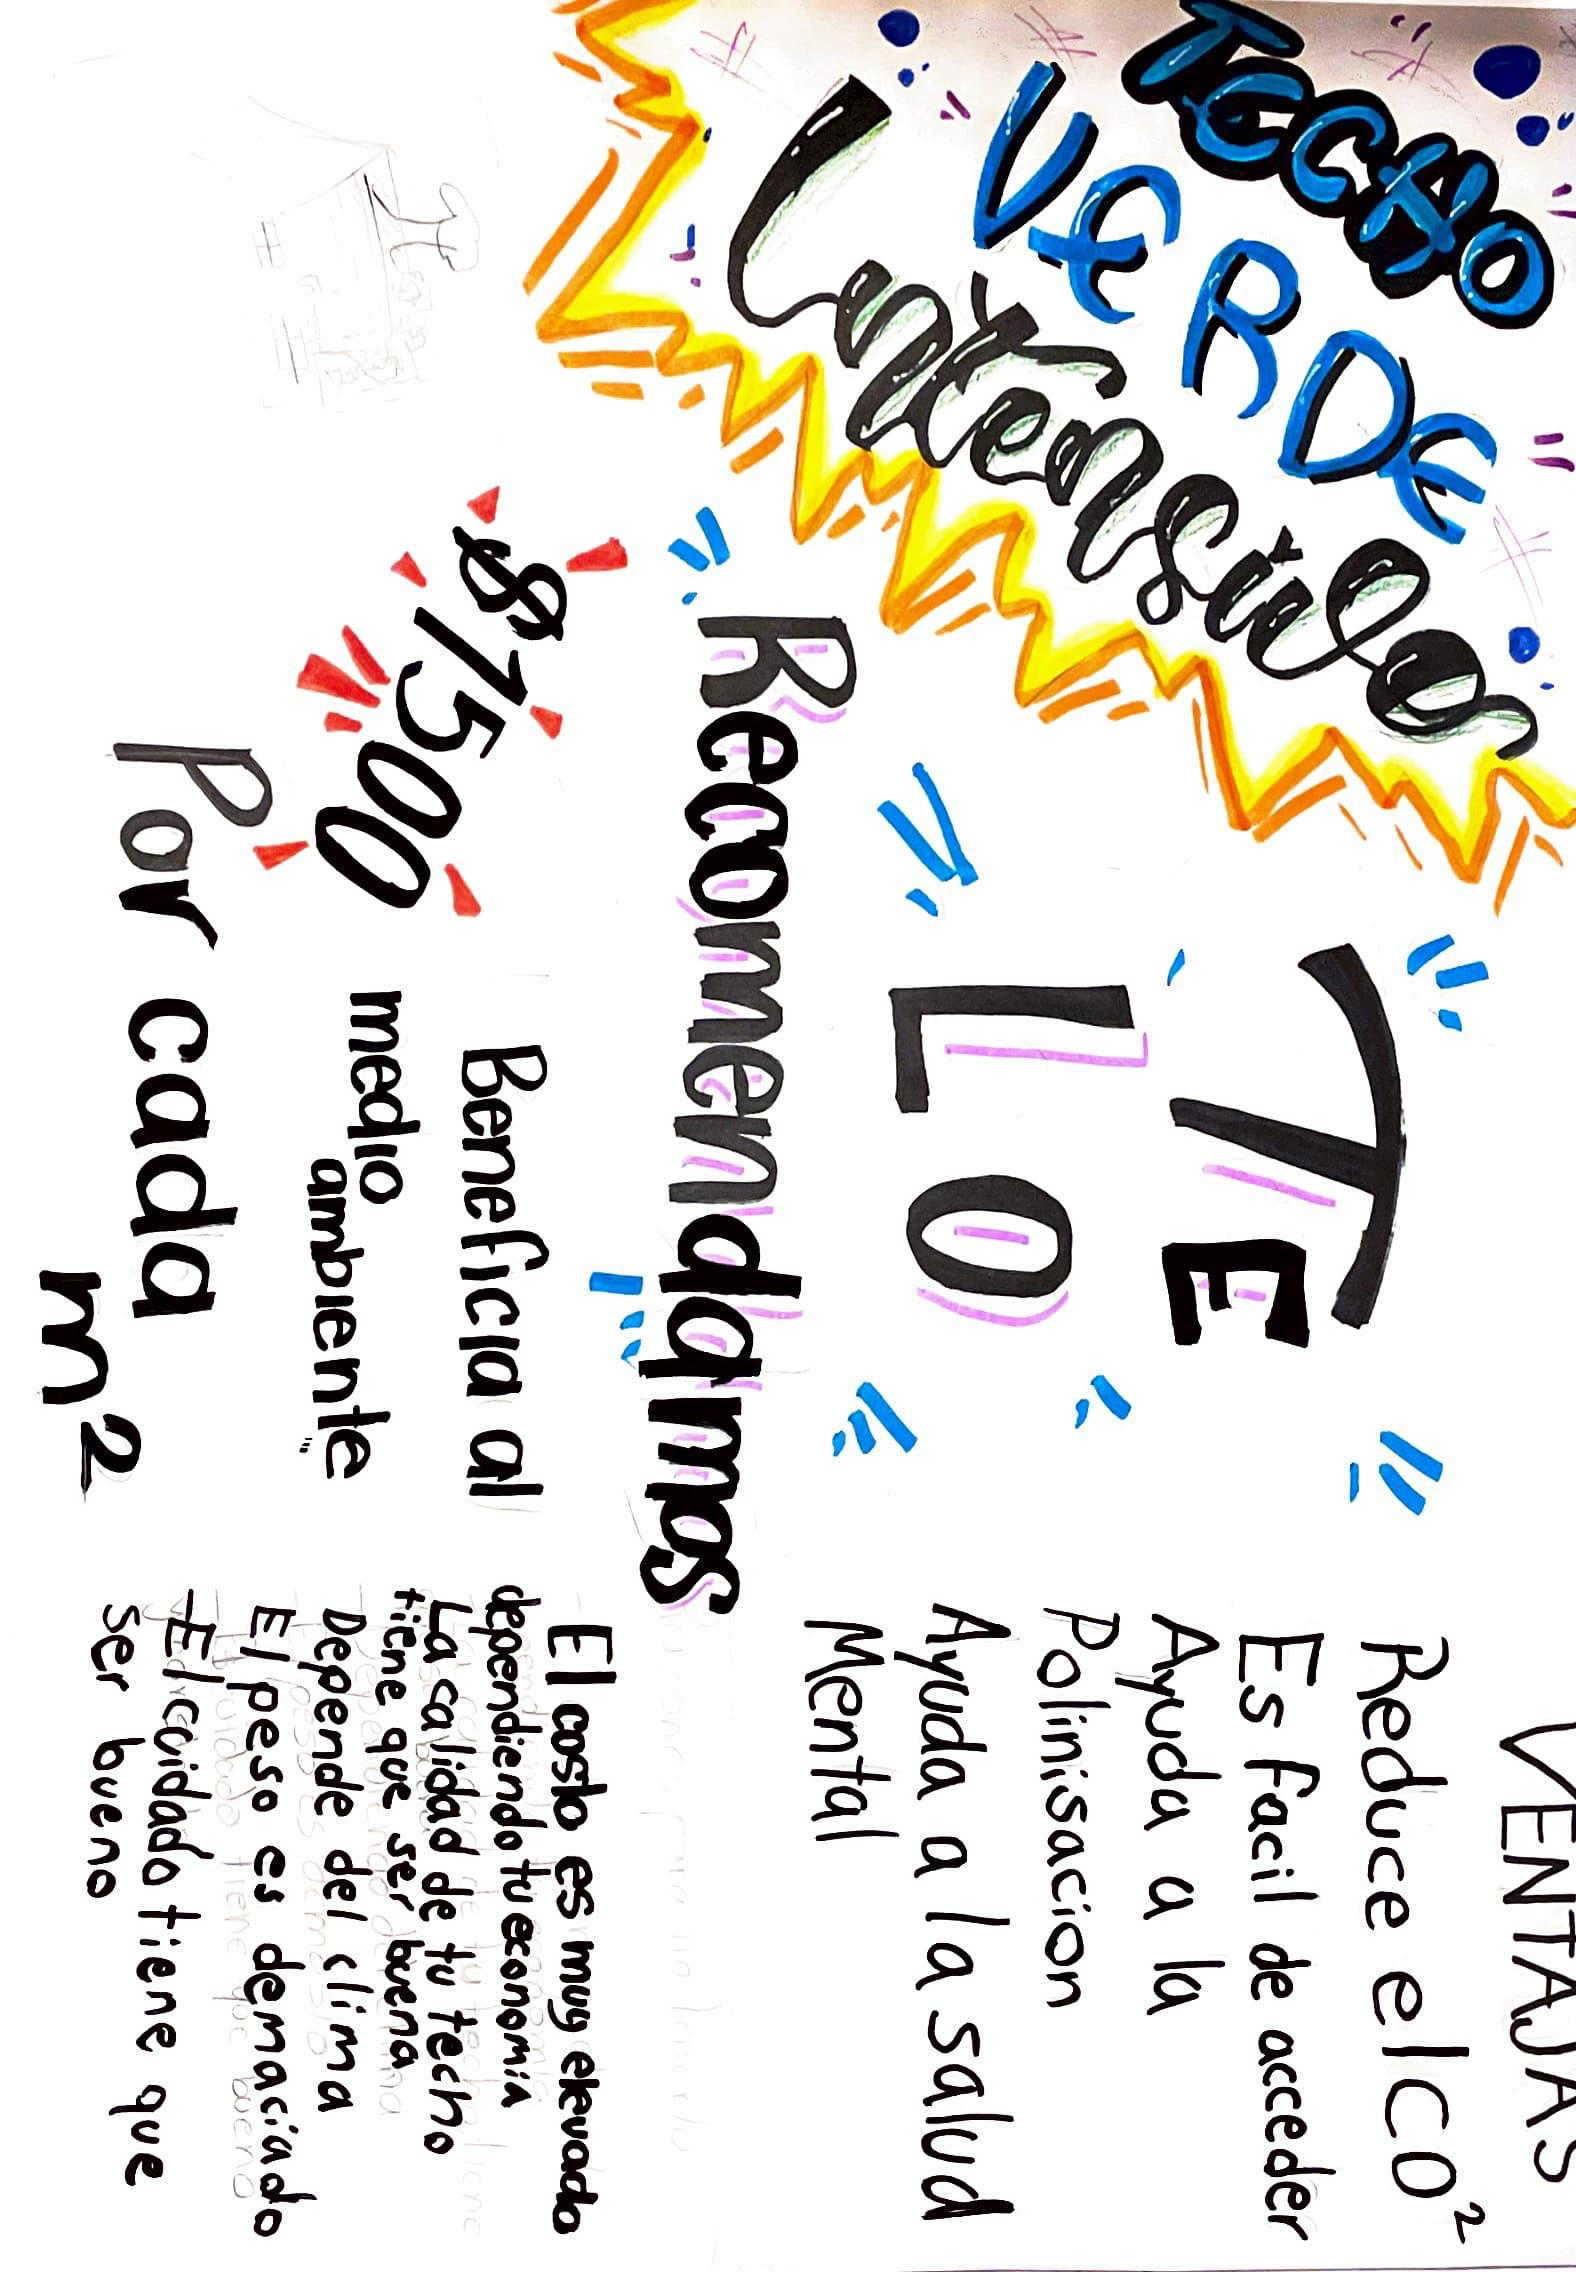 TECHO
VERDE
intensivos
TE
LO
Recomendamos
$1500
Por cada
m²
Beneficia al
medio
ambiente
VENTAJAS
Reduce el CO²
Es facil de acceder
Ayuda a la
Polinisacion
Ayuda a la salud
Mental
El costo es muy elevado
dependiendo tu economia
La calidad de tu techo
tiene que ser buena
Depende del clima
El peso es demaciado
-El cuidado tiene que
ser bueno